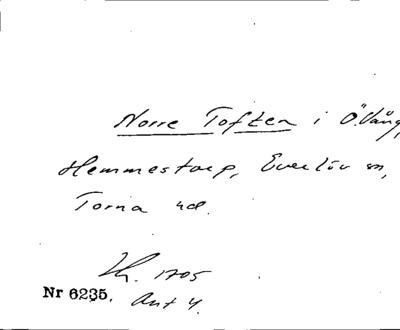 Norre Toften i Ö.Vång,
Hemmestorp, Everlöv sn,
Torna hd.
Lh. 1705
Nr 6235, Akt 4.